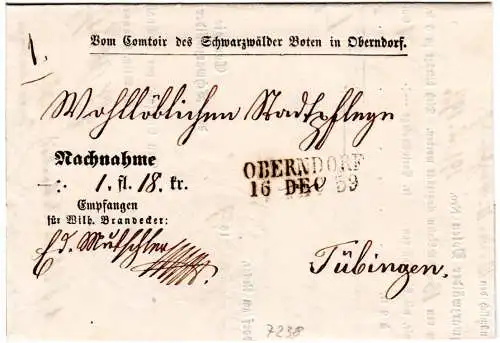 Vom Comtoir des Schwarzwälder Boten in Oberndorf.
1.
Wohllöblichen Stadtpflege
Nachnahme
1. fl. 18. kr.
OBERNDORF
16 DEC 59
Empfangen
für Wilh. Brandecker:
Ed. Mutschler
Tübingen.
7238